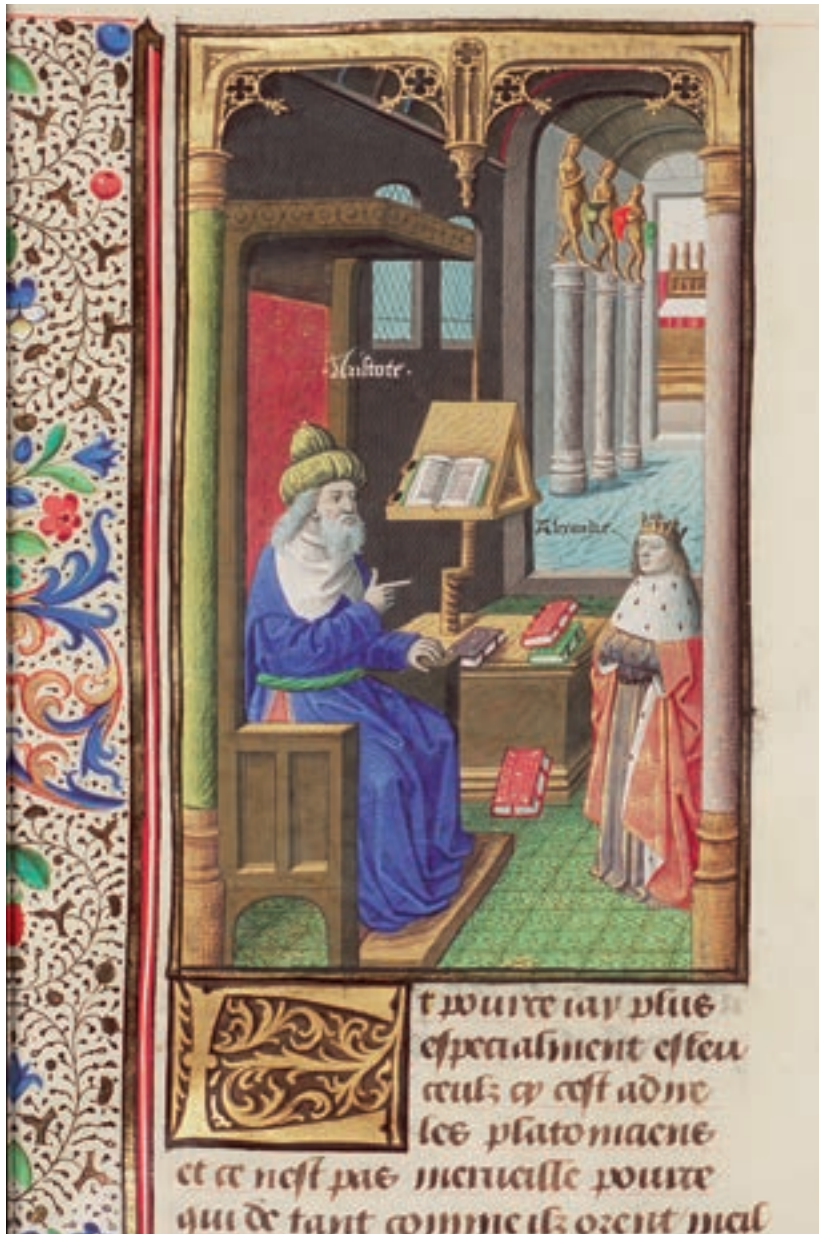 Aristote.
Alexandre.
Et pource iay plus
especialment esleu
ceulz cy cest adire
les platoniciens
et ce nest pas merueille pource
qui de tant comme ilz orent